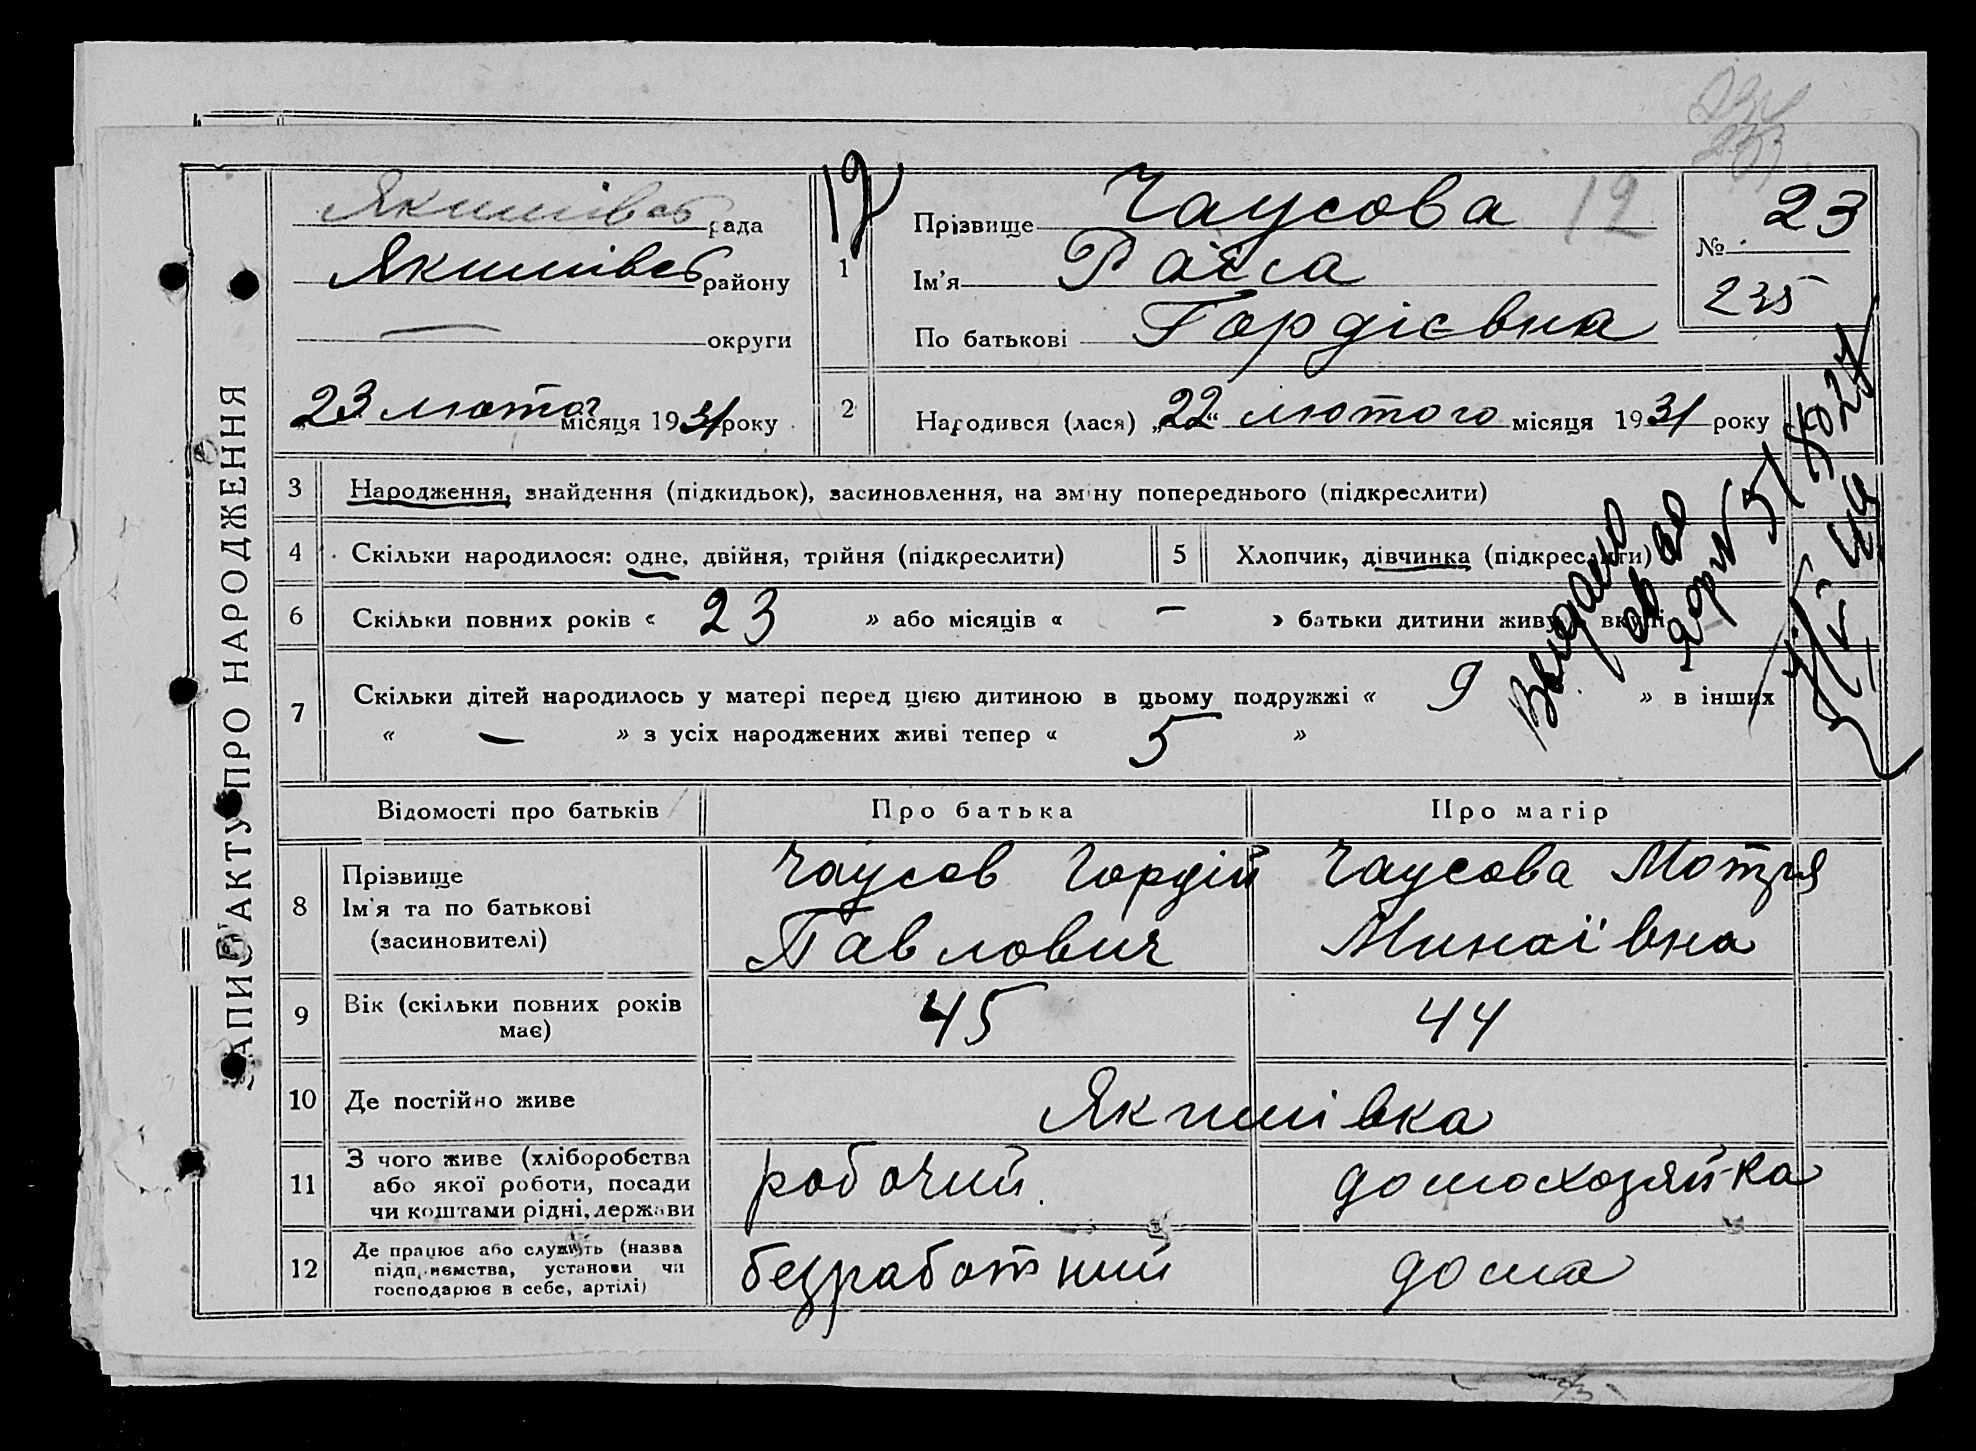 ЗАПИС АКТУ ПРО НАРОДЖЕННЯ
Якимівсь рада
Якимівсь району
— округи
„23 лютого місяця 1931 року
12
№ 23
235
1
Прізвище Чаусова
Ім'я Раїса
По батькові Гордієвна
2
Народився (лася) „22" лютого місяця 1931 року
3 Народження, знайдення (підкидьок), засиновлення, на зміну попереднього (підкреслити)
4 Скільки народилося: одне, двійня, трійня (підкреслити)
5 Хлопчик, дівчинка (підкреслити)
6 Скільки повних років « 23 » або місяців « — » батьки дитини живуть вкупі
7 Скільки дітей народилось у матері перед цією дитиною в цьому подружжі « 9 » в інших
« — » з усіх народжених живі тепер « 5 »
Видано
Відомості про батьків
Про батька
Про матір
8 Прізвище
Ім'я та по батькові
(засиновителі)
Чаусов Гордій
Павлович
Чаусова Мотря
Минаївна
9 Вік (скільки повних років
має)
45
44
10 Де постійно живе
Якимівка
11 З чого живе (хліборобства
або якої роботи, посади
чи коштами рідні, держави
робочий
домохозяйка
12 Де працює або служить (назва
підприємства, установи чи
господарює в себе, артілі)
безработний
дома